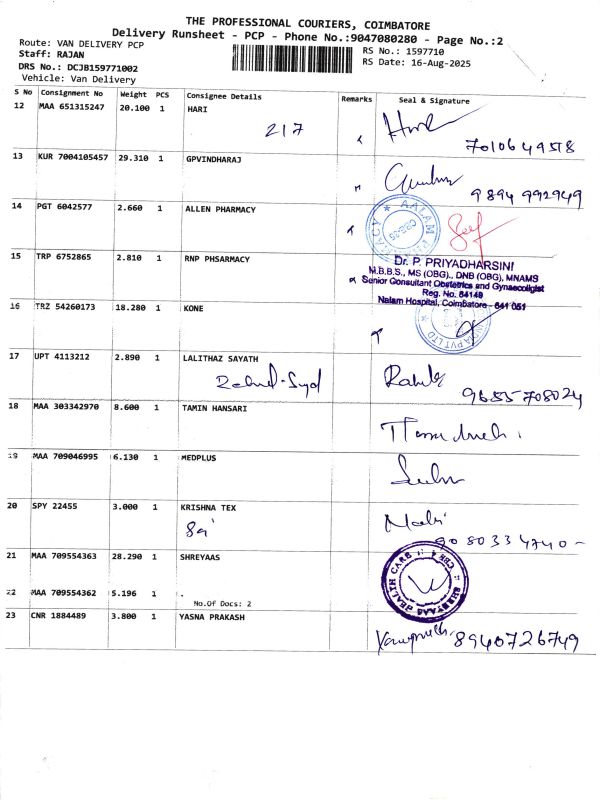 THE PROFESSIONAL COURIERS, COIMBATORE
Delivery Runsheet - PCP - Phone No.:9047080280 - Page No.:2
Route: VAN DELIVERY PCP
Staff: RAJAN
DRS No.: DCJB159771002
Vehicle: Van Delivery
RS No.: 1597710
RS Date: 16-Aug-2025
S No Consignment No Weight PCS Consignee Details Remarks Seal & Signature
12 MAA 651315247 20.100 1 HARI
217
7010649518
13 KUR 7004105457 29.310 1 GPVINDHARAJ
9894992949
14 PGT 6042577 2.660 1 ALLEN PHARMACY
15 TRP 6752865 2.810 1 RNP PHSARMACY
Dr. P. PRIYADHARSINI
M.B.B.S., MS (OBG)., DNB (OBG), MNAMS
Senior Consultant Obstetrics and Gynaecologist
Reg. No. 84149
Nalam Hospital, Coimbatore - 641 051
16 TRZ 54260173 18.280 1 KONE
PVT LTD
17 UPT 4113212 2.890 1 LALITHAZ SAYATH
9655708024
18 MAA 303342970 8.600 1 TAMIN HANSARI
19 MAA 709046995 6.130 1 MEDPLUS
20 SPY 22455 3.000 1 KRISHNA TEX
Sai
9080334740-
21 MAA 709554363 28.290 1 SHREYAAS
SHREYAAS HEALTH CARE
CBE
22 MAA 709554362 5.196 1 .
No.Of Docs: 2
23 CNR 1884489 3.800 1 YASNA PRAKASH
8940726749